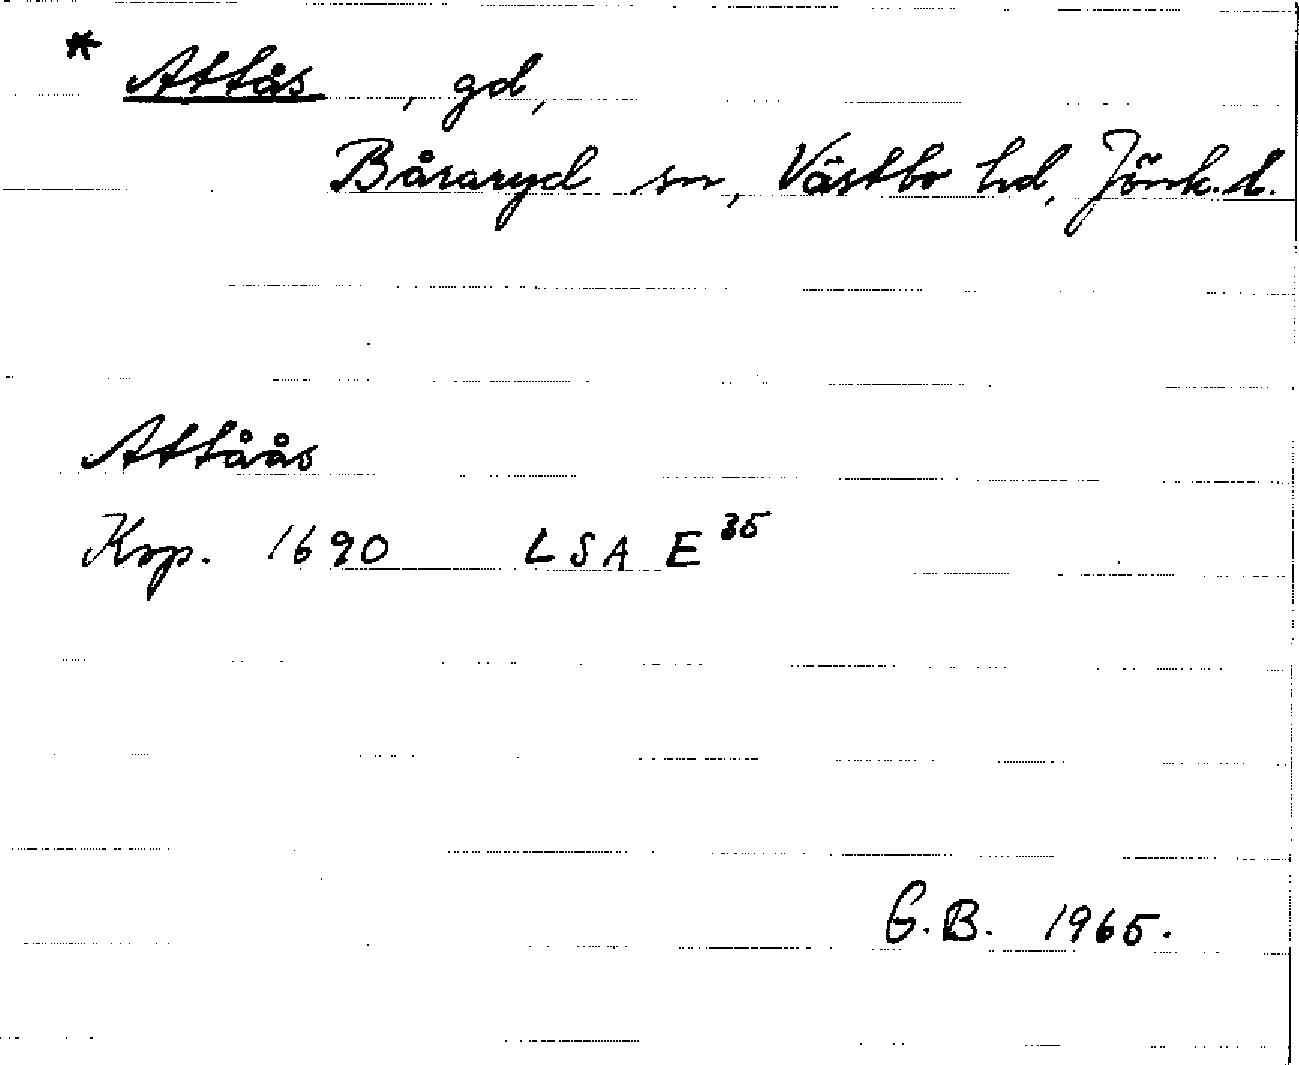 * Attås, gd,
Båraryd sn, Västbo hd, Jönk. l.
Attåås
Krp. 1690 LSA E 35
G.B. 1965.